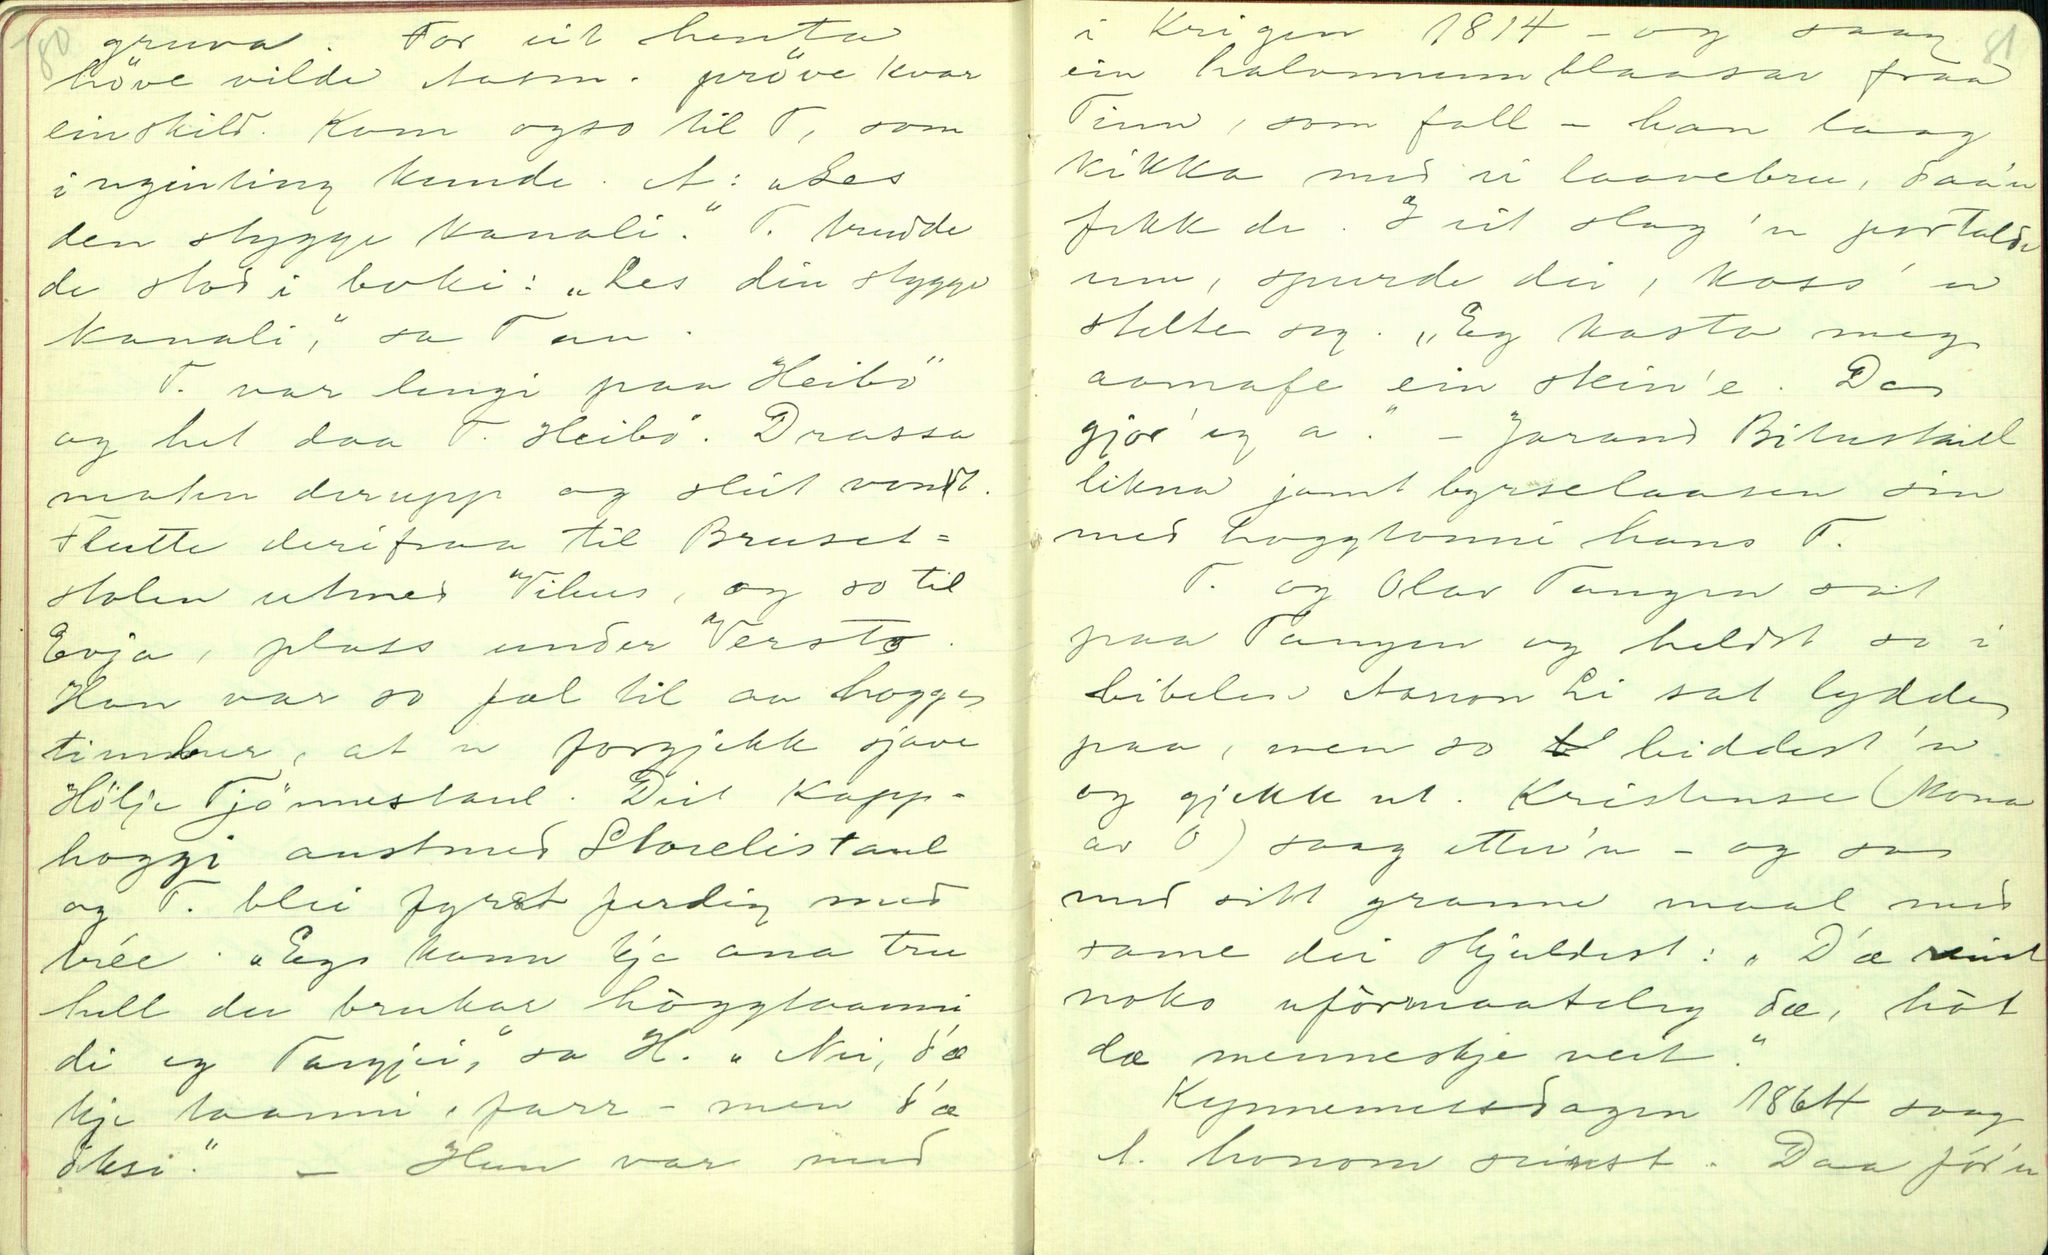 80
gruva. For eit henta
höve vilde Aasm. pröve kvar
einskild. Kom ogso til T, som
inginting kunde. A: „Les
den stygge kanali." T. trudde
de stod i boki: „Les din stygge
kanali," sa T an.
T. var lengi paa Heibö
og het daa T. Heibö. Drassa
maten derupp og sleit vondt.
Flutte derifraa til Bruset-
stolen utmed Vihus, og so til
Evja, plass under Versto.
Han var so fæl til aa hogge
timber, at 'n forgjekk sjave
Hölje Tjönnestaul. Deit kapp-
hoggi austmed Storelistaul
og T. blei fyrst ferdig med
trée. „Eg kann kje ana tru
hell du brukar höggtaanni
di eg Targjei," sa H. „Nei, d'æ
kje taanni, farr - men d'æ
öksi." - Han var med
81
i Krigen 1814 - og saag
ein halvmunnblaasar fraa
Tinn, som fall - han laag
kikka med ei laavebru, daa'n
fekk de. I eit slag 'n fortalde
um, spurde dei, koss 'n
stelte seg. „Eg kasta meg
aomafe ein skin'e. Da
gjor' eg a." - Jorand Bitustaul
likna jamt byrselaasen sin
med hoggtonni hans T.
T. og Olav Tangen sat
paa Tangen og heldt so i
bibelen Aanon Li sat lydde
paa, men so beiddest 'n
og gjekk ut. Kristense (Kona
av O) saag etter'n - og sa
med sitt granne maal med
same dei skjuldest: „D'æ reint
noko uförmaateleg dæ, hòt
dæ menneskje veit."
Kynnemessdagen 1864 saag
A. honom seinst. Daa fór'n